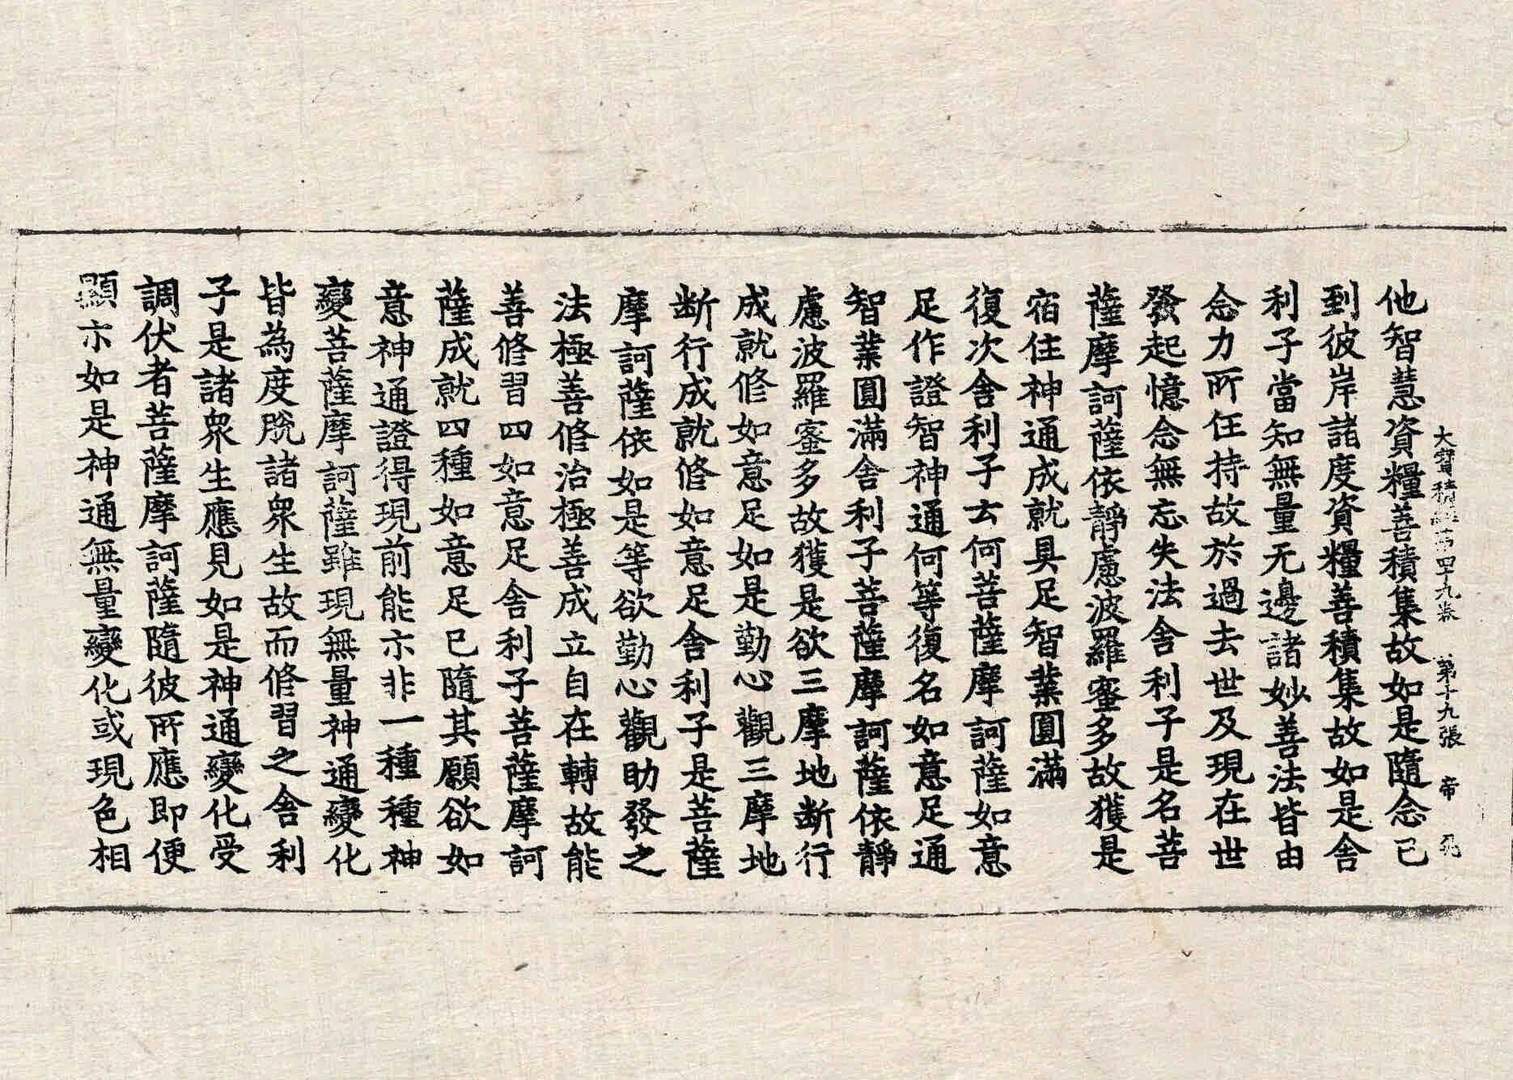 大寶積經第四十九卷 第十九張 帝
他智慧資糧善積集故如是隨念已
到彼岸諸度資糧善積集故如是舍
利子當知無量无邊諸妙善法皆由
念力所任持故於過去世及現在世
發起憶念無忘失法舍利子是名菩
薩摩訶薩依靜慮波羅蜜多故獲是
宿住神通成就具足智業圓滿
復次舍利子云何菩薩摩訶薩如意
足作證智神通何等復名如意足通
智業圓滿舍利子菩薩摩訶薩依靜
慮波羅蜜多故獲是欲三摩地断行
成就修如意足如是勤心觀三摩地
断行成就修如意足舍利子是菩薩
摩訶薩依如是等欲勤心觀助發之
法極善修治極善成立自在轉故能
善修習四如意足舍利子菩薩摩訶
薩成就四種如意足已隨其願欲如
意神通證得現前能亦非一種種神
變菩薩摩訶薩雖現無量神通變化
皆為度脫諸衆生故而修習之舍利
子是諸衆生應見如是神通變化受
調伏者菩薩摩訶薩隨彼所應即便
顯亦如是神通無量變化或現色相